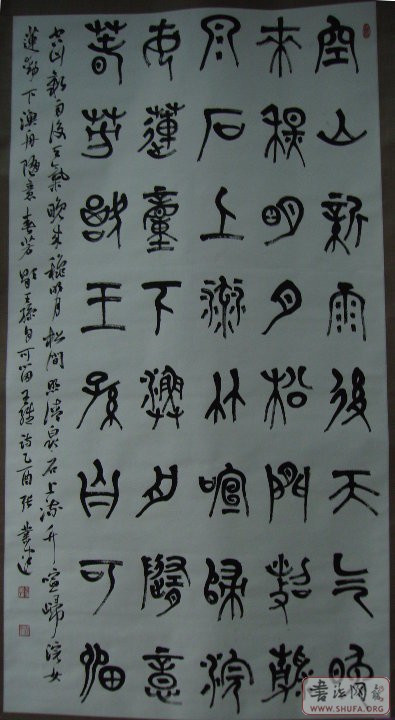 空山新雨後天气晚
來穐明月松間照清
泉石上流竹喧歸浣
女蓮動下漁舟隨意
春芳歇王孫自可留
空山新雨後天氣晚來穐明月松間照清泉石上流竹喧歸浣女
蓮動下漁舟隨意春芳歇王孫自可留王維诗乙酉張業
書法网
WWW.SHUFA.ORG